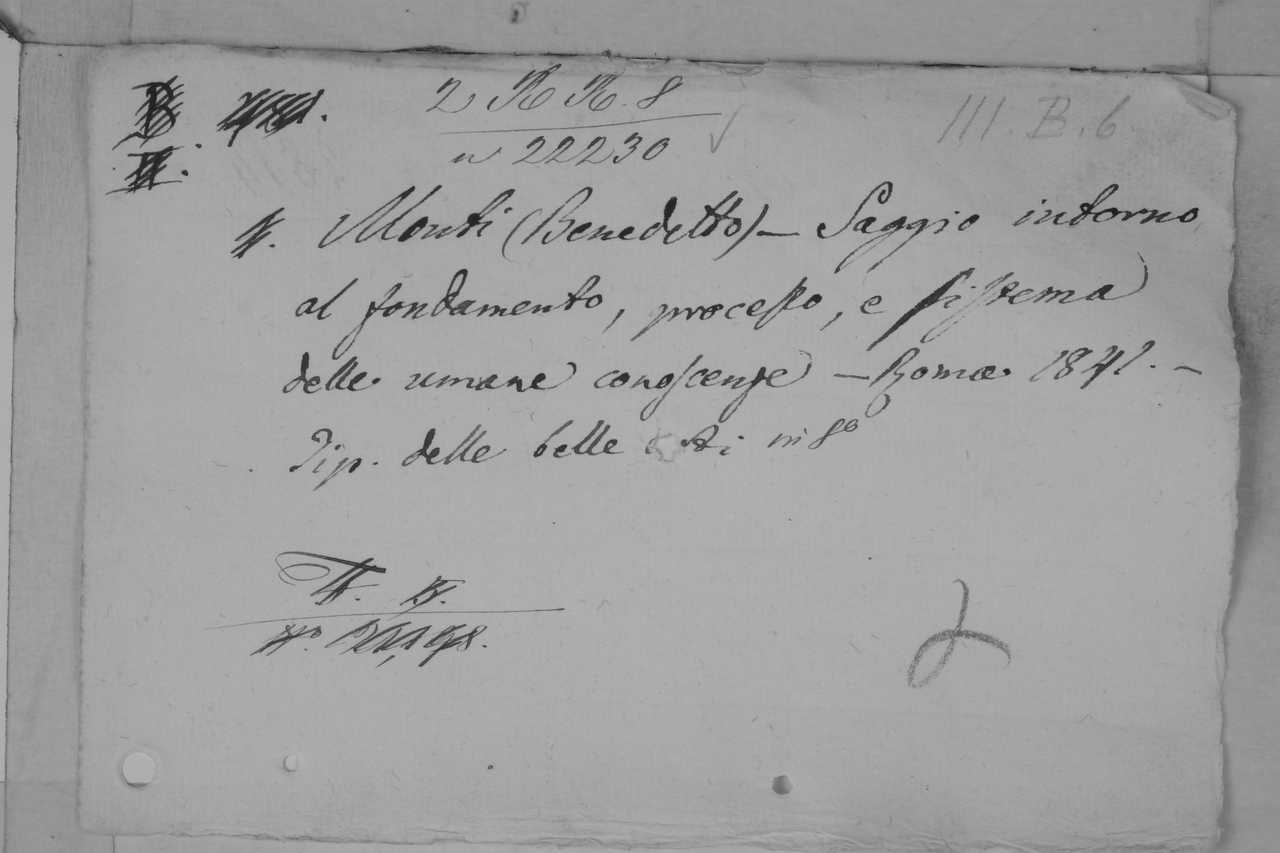 2 R R. 8
n 22230
III. B. 6
Monti (Benedetto) — Saggio intorno
al fondamento, processo, e sistema
delle umane conoscenze — Roma 1841. —
Tip. delle belle in 8º